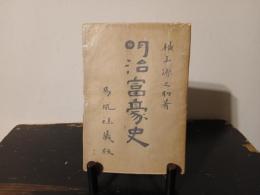 横山源之助著
明治富豪史
易風社蔵版